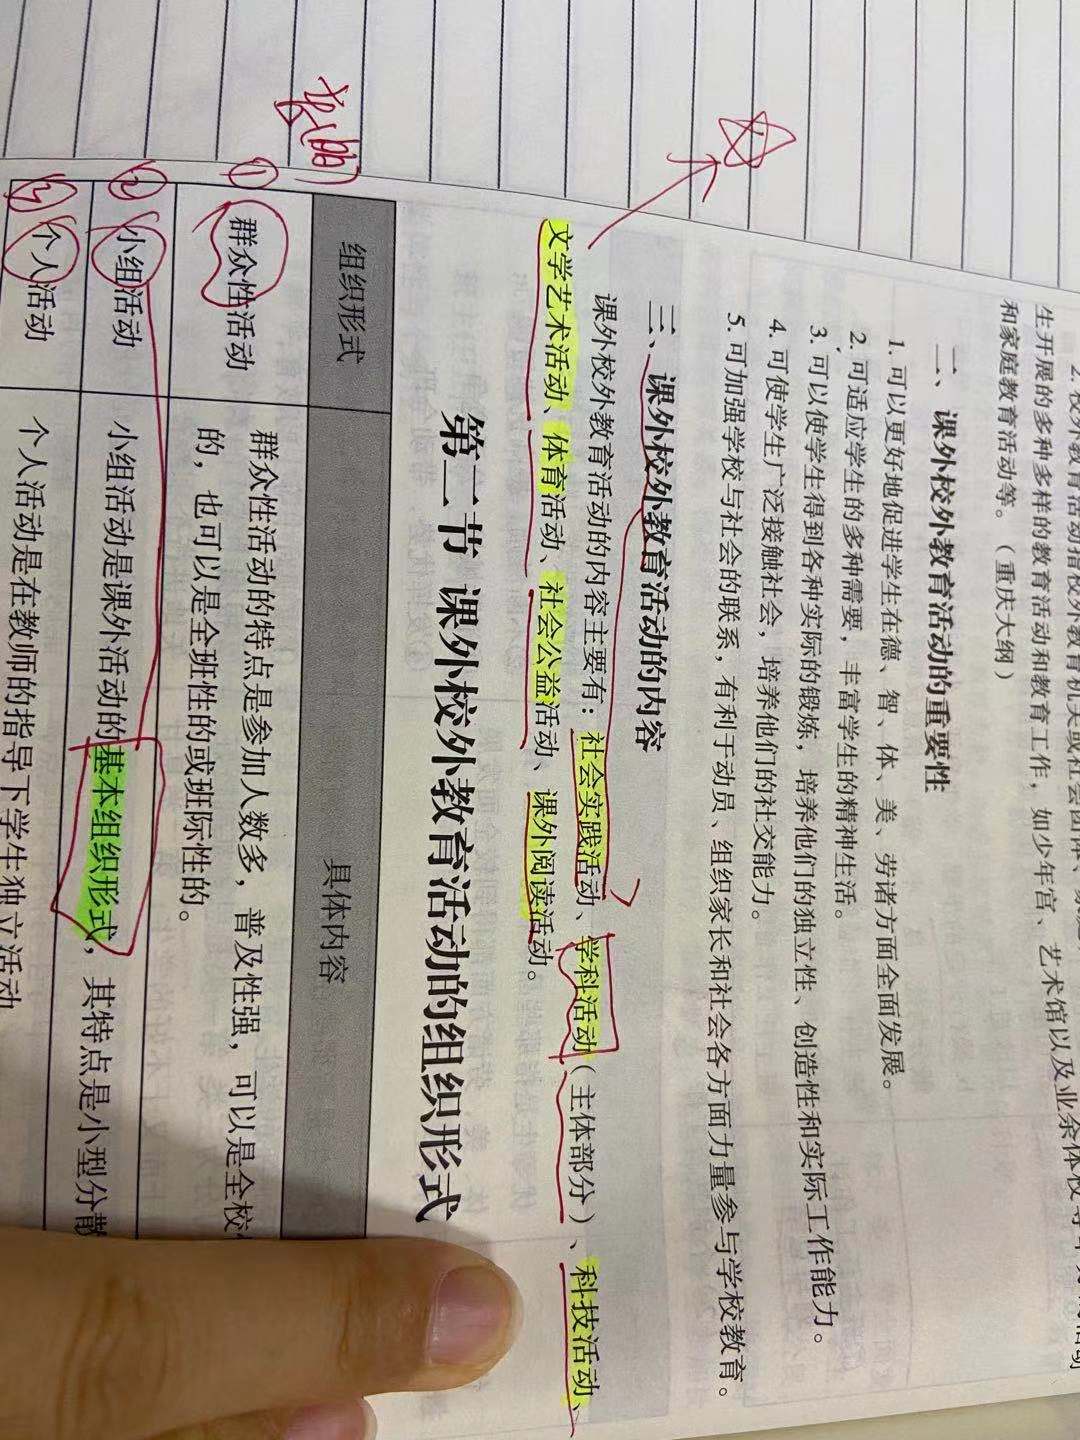 2. 校外教育活动指校外教育机关或社会团体、
生开展的多种多样的教育活动和教育工作，如少年宫、艺术馆以及业余体校等
和家庭教育活动等。（重庆大纲）
二、课外校外教育活动的重要性
1. 可以更好地促进学生在德、智、体、美、劳诸方面全面发展。
2. 可适应学生的多种需要，丰富学生的精神生活。
3. 可以使学生得到各种实际的锻炼，培养他们的独立性、创造性和实际工作能力。
4. 可使学生广泛接触社会，培养他们的社交能力。
5. 可加强学校与社会的联系，有利于动员、组织家长和社会各方面力量参与学校教育。
三、课外校外教育活动的内容
课外校外教育活动的内容主要有：社会实践活动、学科活动（主体部分）、科技活动、
文学艺术活动、体育活动、社会公益活动、课外阅读活动。
第二节 课外校外教育活动的组织形式
组织形式 具体内容
① 群众性活动 群众性活动的特点是参加人数多，普及性强，可以是全校
的，也可以是全班性的或班际性的。
② 小组活动 小组活动是课外活动的基本组织形式，其特点是小型分散
③ 个人活动 个人活动是在教师的指导下学生独立活动